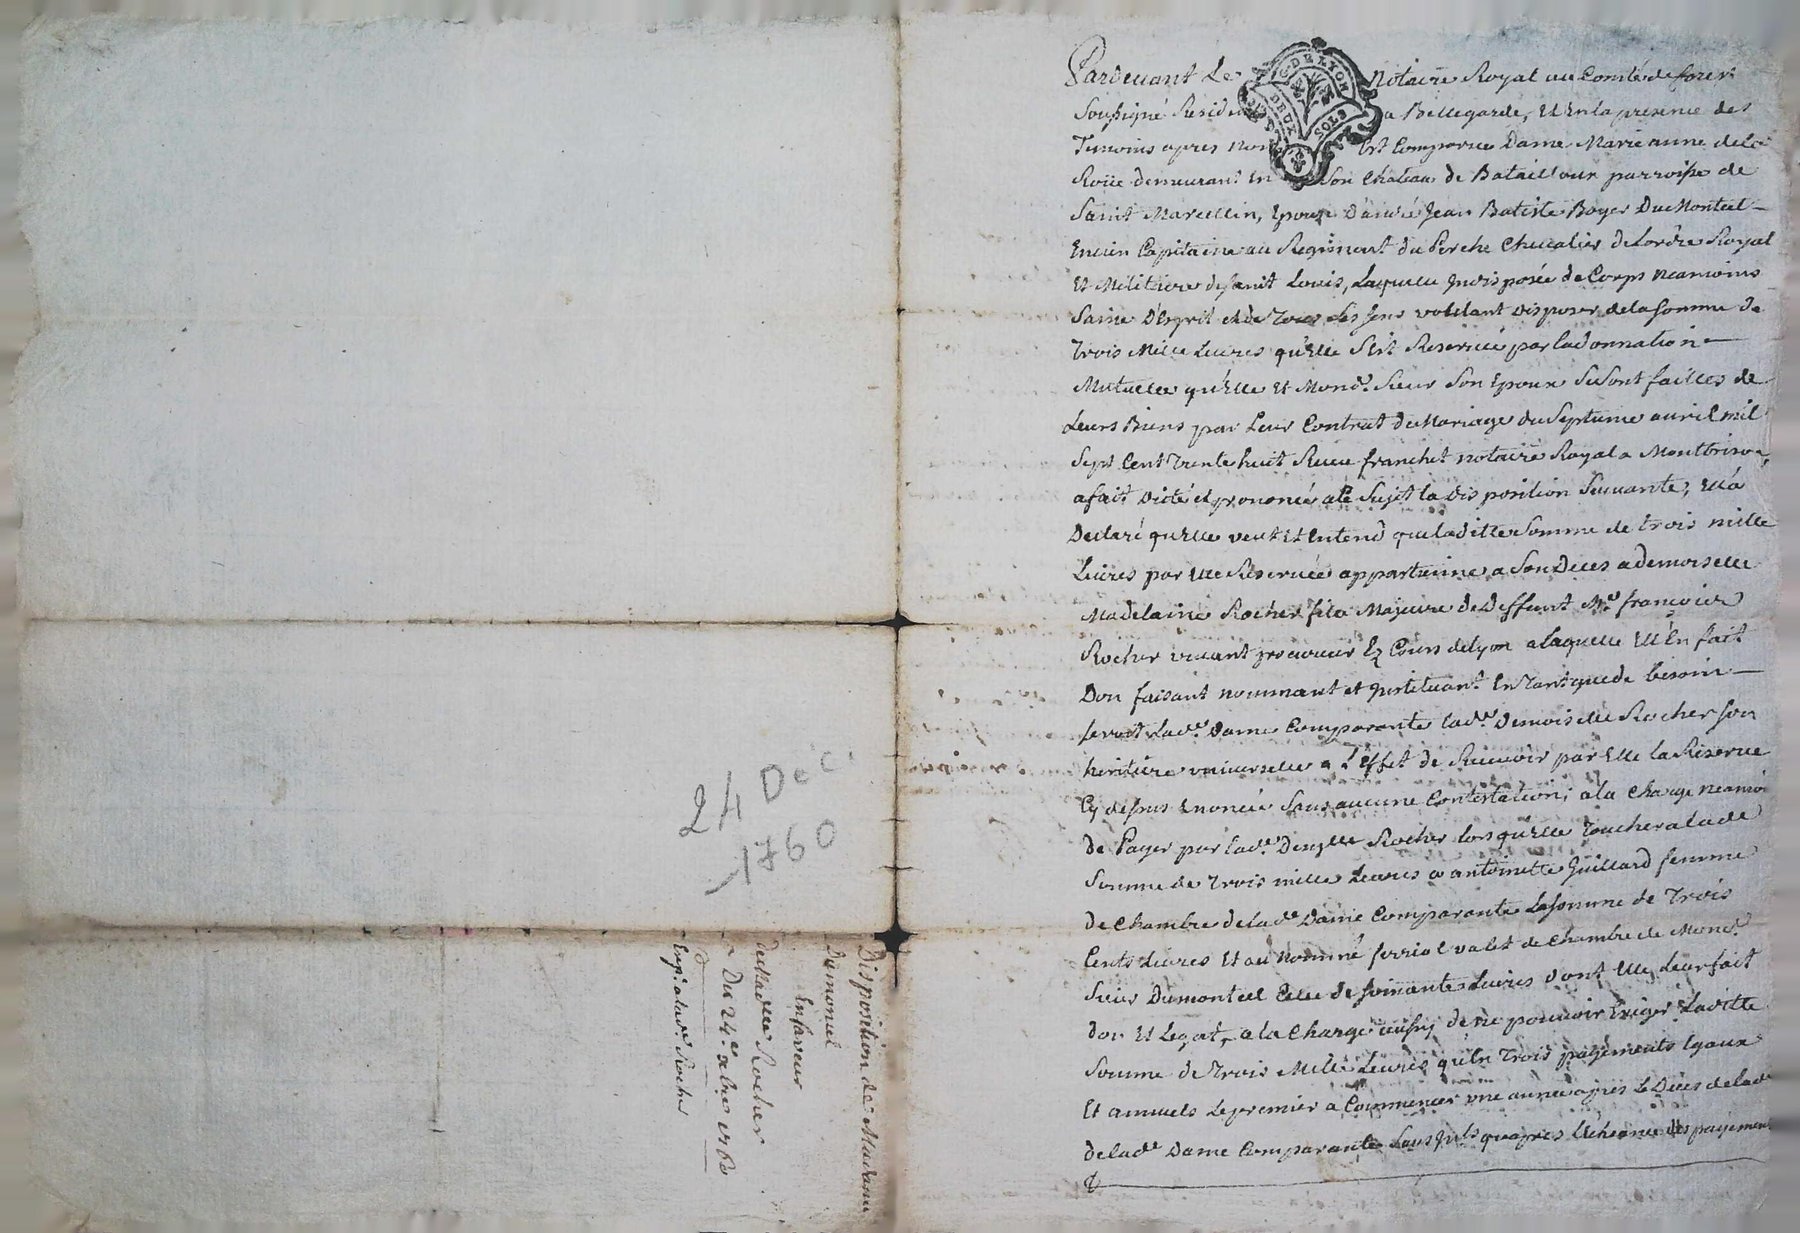 Pardevant Le Notaire Royal au Comté de forest
Soussigné Resid a Bellegarde, Et En la presence des
Temoins apres nom Est Comparue Dame Marie anne de la
Roüe demeurant En Son Chateau de Batailloux parroisse de
Saint Marcellin, Epouse D'andré Jean Batiste Boyer Du Monteil
Encien Capitaine au Regiment du Perche Chevalier de Lordre Royal
Et Militaire de Saint Louis, Laquelle Indisposée de Corps neamoins
Saine D'Esprit et de Tous Ses Sens voulant disposer de la Somme de
Trois Mille Livres qu'Elle S'est Reservée par la donnation
Mutuelle qu'Elle Et Mond.t Sieur Son Epoux Se Sont faittes de
Leurs Biens par Leur Contrat de Mariage du Septieme avril mil
Sept Cent Trente huit Receu franchet notaire Royal a Montbrison,
a fait dicté et prononcé a ce Sujet la disposition Suivante, Et a
Declaré qu'Elle veut Et Entend que laditte Somme de trois mille
Livres par Elle Reservée appartienne a Son Deces a demoiselle
Madelaine Rocher fille Majeure de Deffunt Me. francois
Rocher vivant procureur Ez Cours de Lyon a Laquelle Elle En fait
Don faisant nommant et Instituant En Tant que de besoin
Seroit Lad.e Dame Comparante lad.e Demoiselle Rocher Son
heritiere universelle a L'effet de Recevoir par Elle la Reserve
Cy dessus Enoncée Sans aucune Contestation; a la Charge neamoi
de Payer par lad.e Demlle Rocher lors qu'Elle Touchera lade
Somme de Trois mille Livres a antoinette Guillard femme
de Chambre de lad.e Dame Comparante La Somme de Trois
Cents Livres Et au Nommé ferriol valet de Chambre de Mond.
Sieur Dumonteil Celle de Soixante Livres dont Elle Leur fait
don Et Legat, a la Charge aussy de ne pouvoir Exiger Laditte
Somme de Trois Mille Livres qu'En Trois payements Egaux
Et annuels Le premier a Commencer une année apres Le Deces de lad
de lad.e Dame Comparante Sans Int. qu'apres L'Echeance des payement
24 Dec.
1760
Disposition de Madame
Dumonteil
En faveur
de Madlle Rocher
Du 24.e xbre 1760
Exp. a lad.e Rocher
G. DE LYON
DEUX SOLS